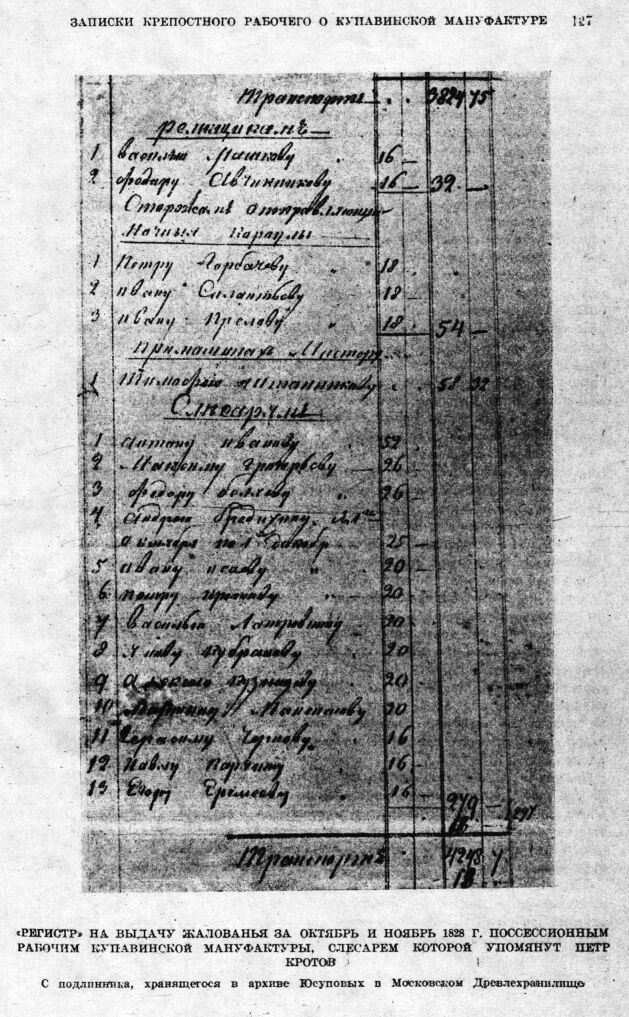 ЗАПИСКИ КРЕПОСТНОГО РАБОЧЕГО О КУПАВИНСКОЙ МАНУФАКТУРЕ 127
Транспортъ 3824 75
1 Василью Машкову 16 —
2 Федару Авчинникову 16 — 32 —
Сторжамъ отправляющимъ
Начныя Караулы
1 Петру Горбачеву 18
2 Ивану Силантьеву 18 —
3 Ивану 18 — 54 —
1 Тимофею 58 32
Слесарямъ
1 Антану Иванову 52
2 Максиму Григорьеву — 26 —
3 Федору 26 —
4 Андрею
25 —
5 Ивану Исаеву 20 —
6 Петру 20
7 Василью 20
8 20
9 Алексею Кузнецову 20
10 20
11 Герасиму 16
12 Науму 16 —
13 Егору Еремееву 16 —
279
Транспортъ 4248 7
18
«РЕГИСТР» НА ВЫДАЧУ ЖАЛОВАНЬЯ ЗА ОКТЯБРЬ И НОЯБРЬ 1828 Г. ПОССЕССИОННЫМ
РАБОЧИМ КУПАВИНСКОЙ МАНУФАКТУРЫ, СЛЕСАРЕМ КОТОРОЙ УПОМЯНУТ ПЕТР
КРОТОВ
С подлинника, хранящегося в архиве Юсуповых в Московском Древлехранилище